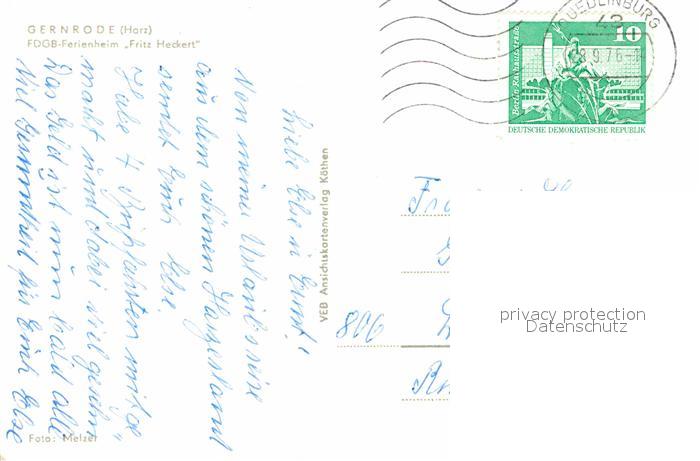 GERNRODE (Harz)
FDGB-Ferienheim „Fritz Heckert"
Liebe Else u Ernst!
Von meiner Urlaubsreise
aus dem schönen Harzerland
sendet Euch Else.
Habe 4 mitge-
macht und dabei viel gesehn
Das Geld ist nun bald alle
Viel Gesundheit für Euch Else
Foto: Melzer
VEB Ansichtskartenverlag Köthen
QUEDLINBURG
43
9.76
10
Berlin, Rathausstraße
DEUTSCHE DEMOKRATISCHE REPUBLIK
806
privacy protection
Datenschutz